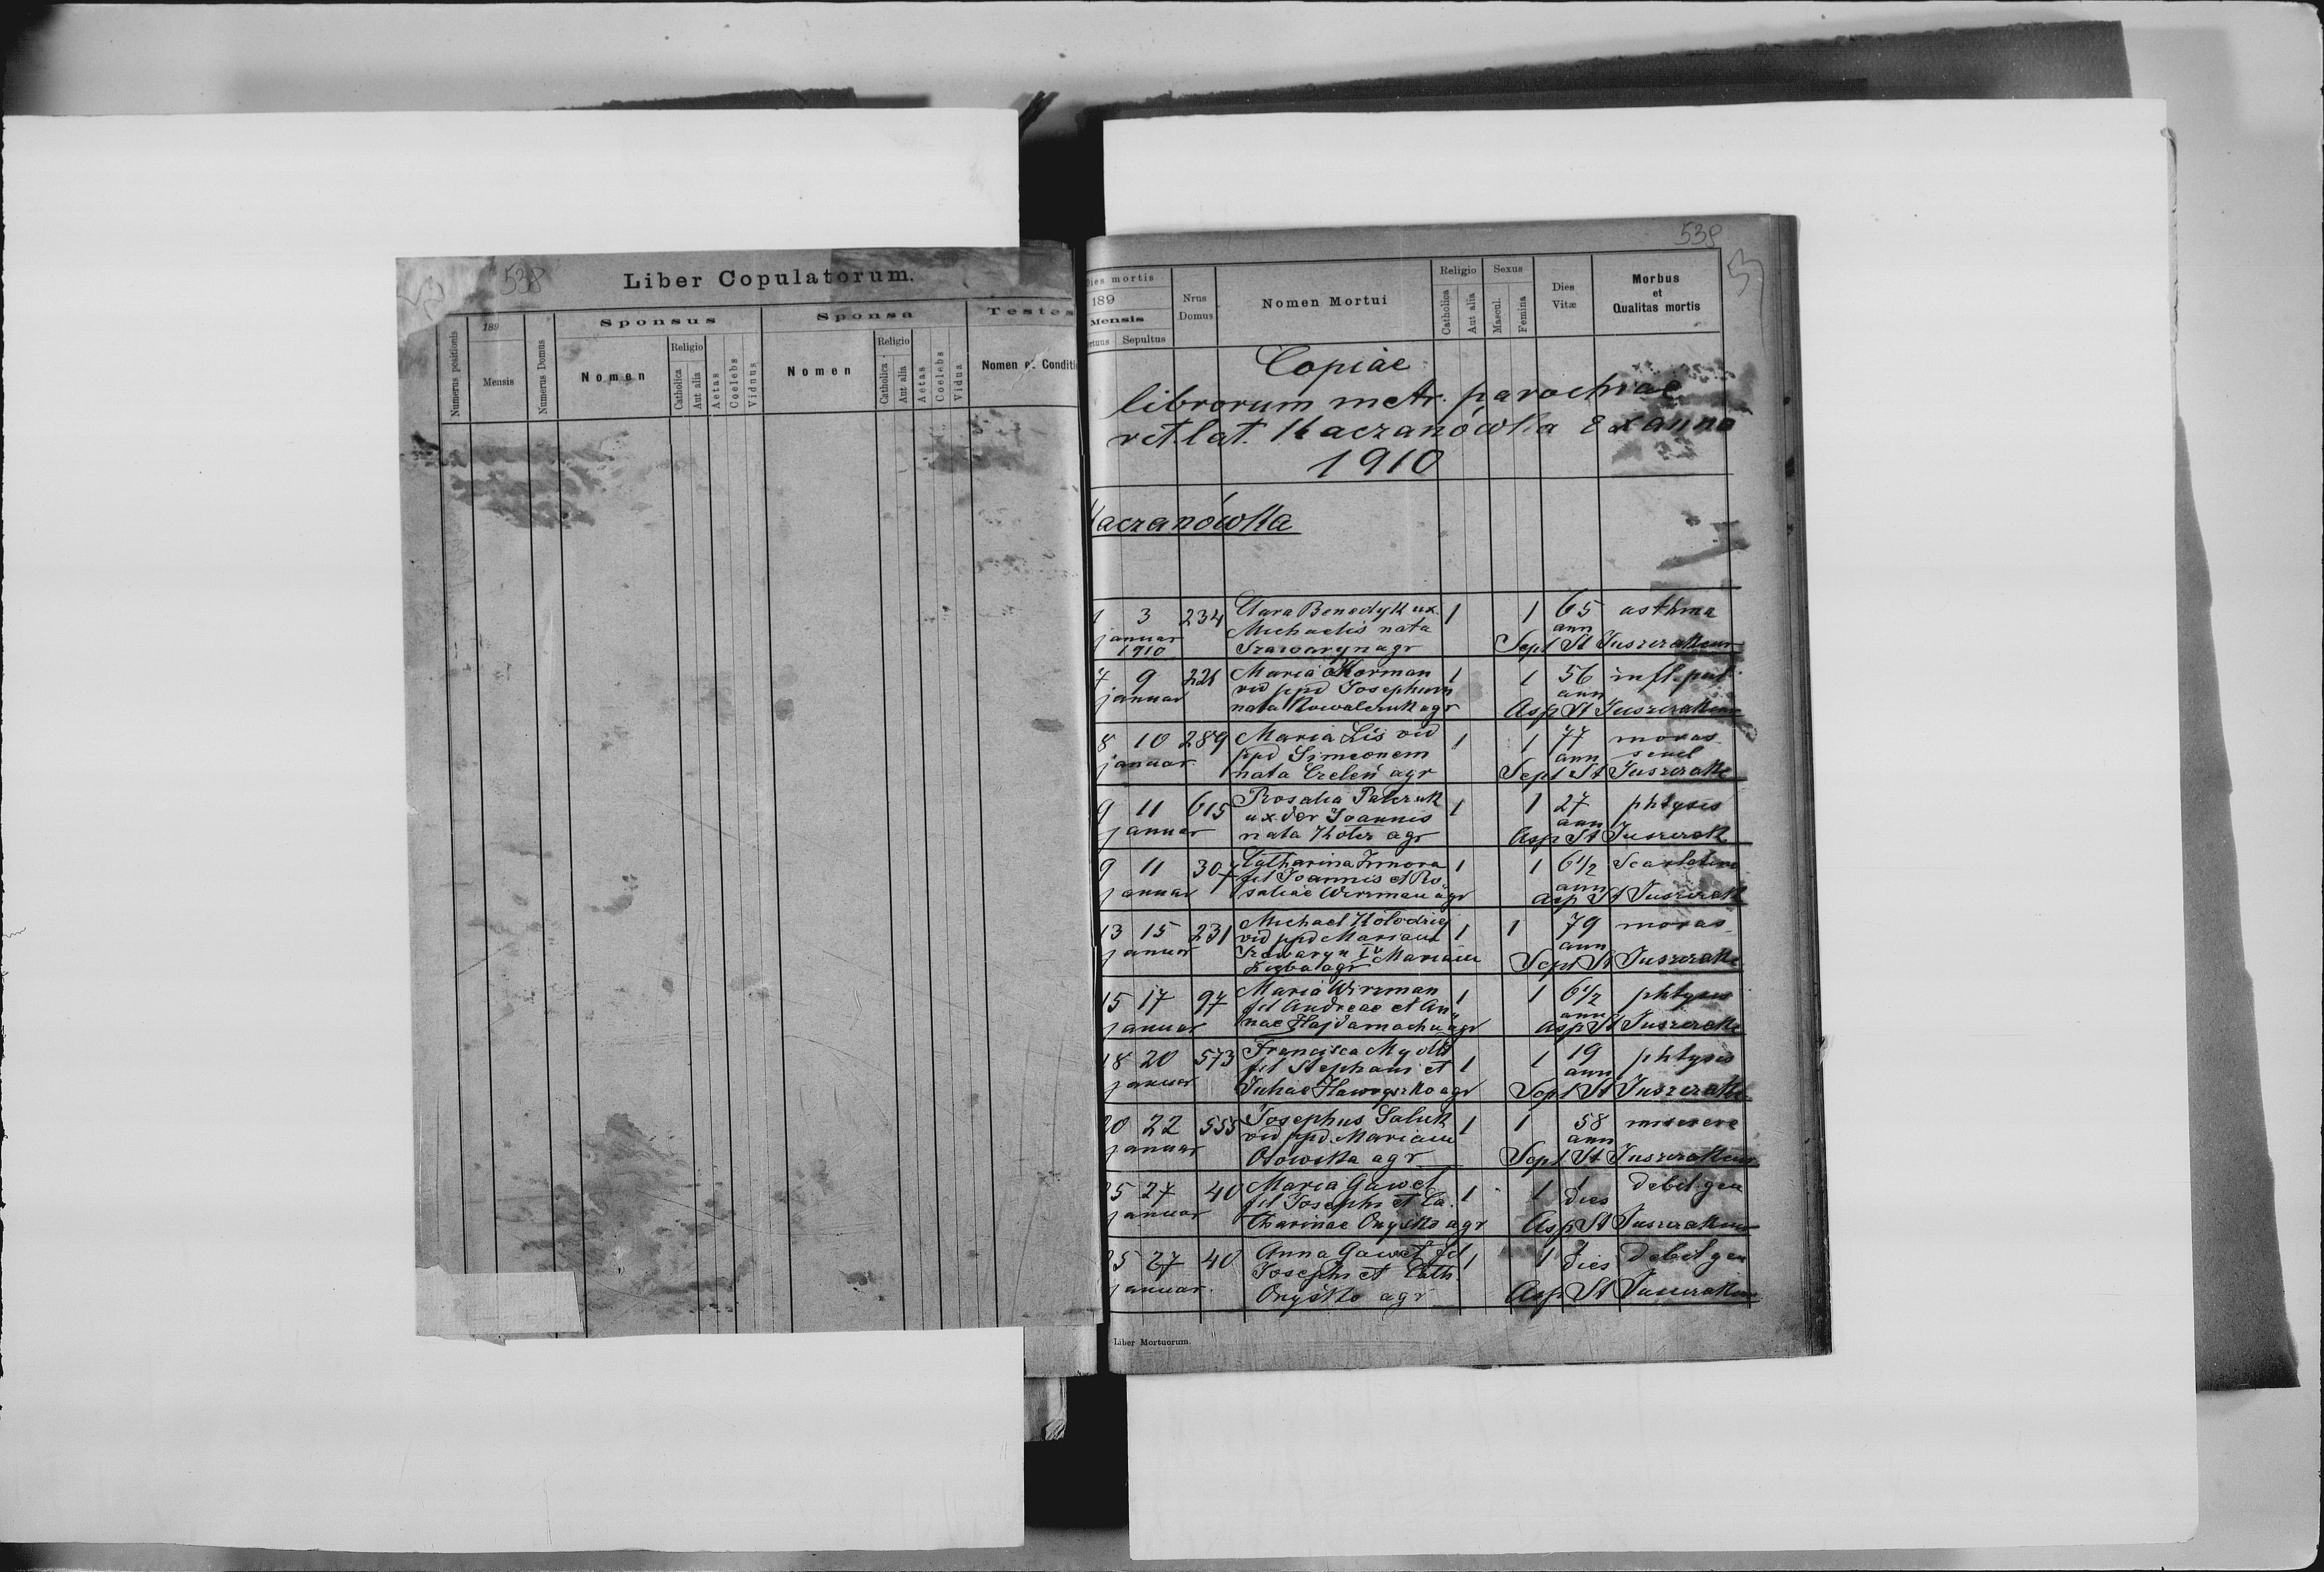 538
Liber Copulatorum.
Numerus positionis
189
Mensis
Numerus Domus
Sponsus
Sponsa
Testes
Nomen
Religio
Catholica
Aut alia
Aetas
Coelebs
Viduus
Nomen
Religio
Catholica
Aut alia
Aetas
Coelebs
Vidua
Nomen et Conditi
538
Dies mortis
189
Mensis
Sepultus
Nrus Domus
Nomen Mortui
Religio
Catholica
Aut alia
Sexus
Mascul.
Femina
Dies Vitæ
Morbus
et
Qualitas mortis
Copiae
librorum metr. parochiae
rit lat. Kaczanówka ex anno
1910
Kaczanówka
1 3 234 Clara Benedyk ux 1 1 65 asthma
januar Michaelis nata ann
1910 Szawaryn agr Sept St Juszczak
7 9 226 Maria Korman 1 1 56 infl. pul
januar vid ppd Josephum ann
nata Kowalczuk agr Asp St Juszczak
8 10 289 Maria Lis vid 1 1 77 moras
januar ppd Simeonem ann senil
nata agr Sept St Juszczak
9 11 615 Rosalia 1 1 27 phtysis
januar ux Joannis ann
nata agr Asp St Juszczak
9 11 307 Catharina 1 1 6 1/2 Scarlatina
januar fil Joannis et Ro ann
saliae Wirzman agr Asp St Juszczak
13 15 231 Michael Kołodziej 1 1 79 moras
januar vid ppd Mariam ann
Szawaryn Mariam
agr Sept St Juszczak
15 17 97 Maria Wirzman 1 1 6 1/2 phtysis
januar fil Andreae et An ann
nae Hajdamacha agr Asp St Juszczak
18 20 573 Francisca 1 1 19 phtysis
januar fil Stephani et ann
Juliae agr Sept St Juszczak
20 22 555 Josephus 1 1 58 miserere
januar vid ppd Mariam ann
Osowska agr Sept St Juszczak
25 27 40 Maria Gaweł 1 1 1 debil gen
januar fil Josephi et Ca dies
tharinae Onyśko agr Asp St Juszczak
25 27 40 Anna Gaweł fil 1 1 dies debil gen
januar Josephi et Cath
Onyśko agr Asp St Juszczak
Liber Mortuorum.